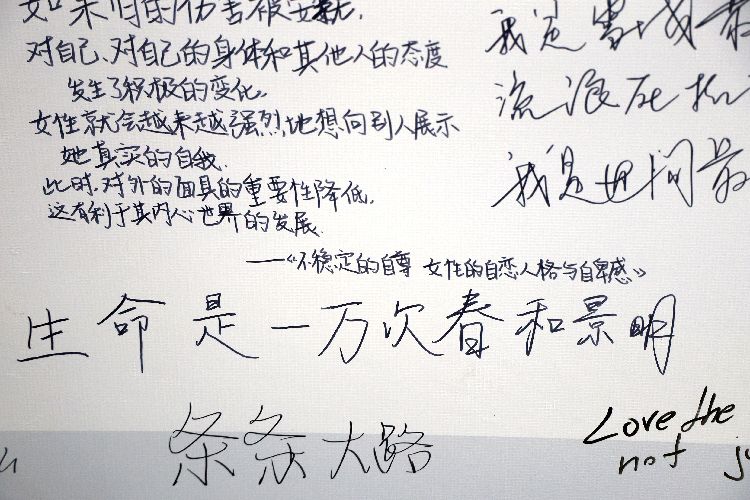 对自己、对自己的身体和其他人的态度
发生了积极的变化.
女性就会越来越强烈地想向别人展示
她真实的自我.
此时,对外的面具的重要性降低,
这有利于其内心世界的发展.
——《不稳定的自尊 女性的自恋人格与自卑感》
我是
流浪
我是世间最
生命是一万次春和景明
条条大路
Love the
not